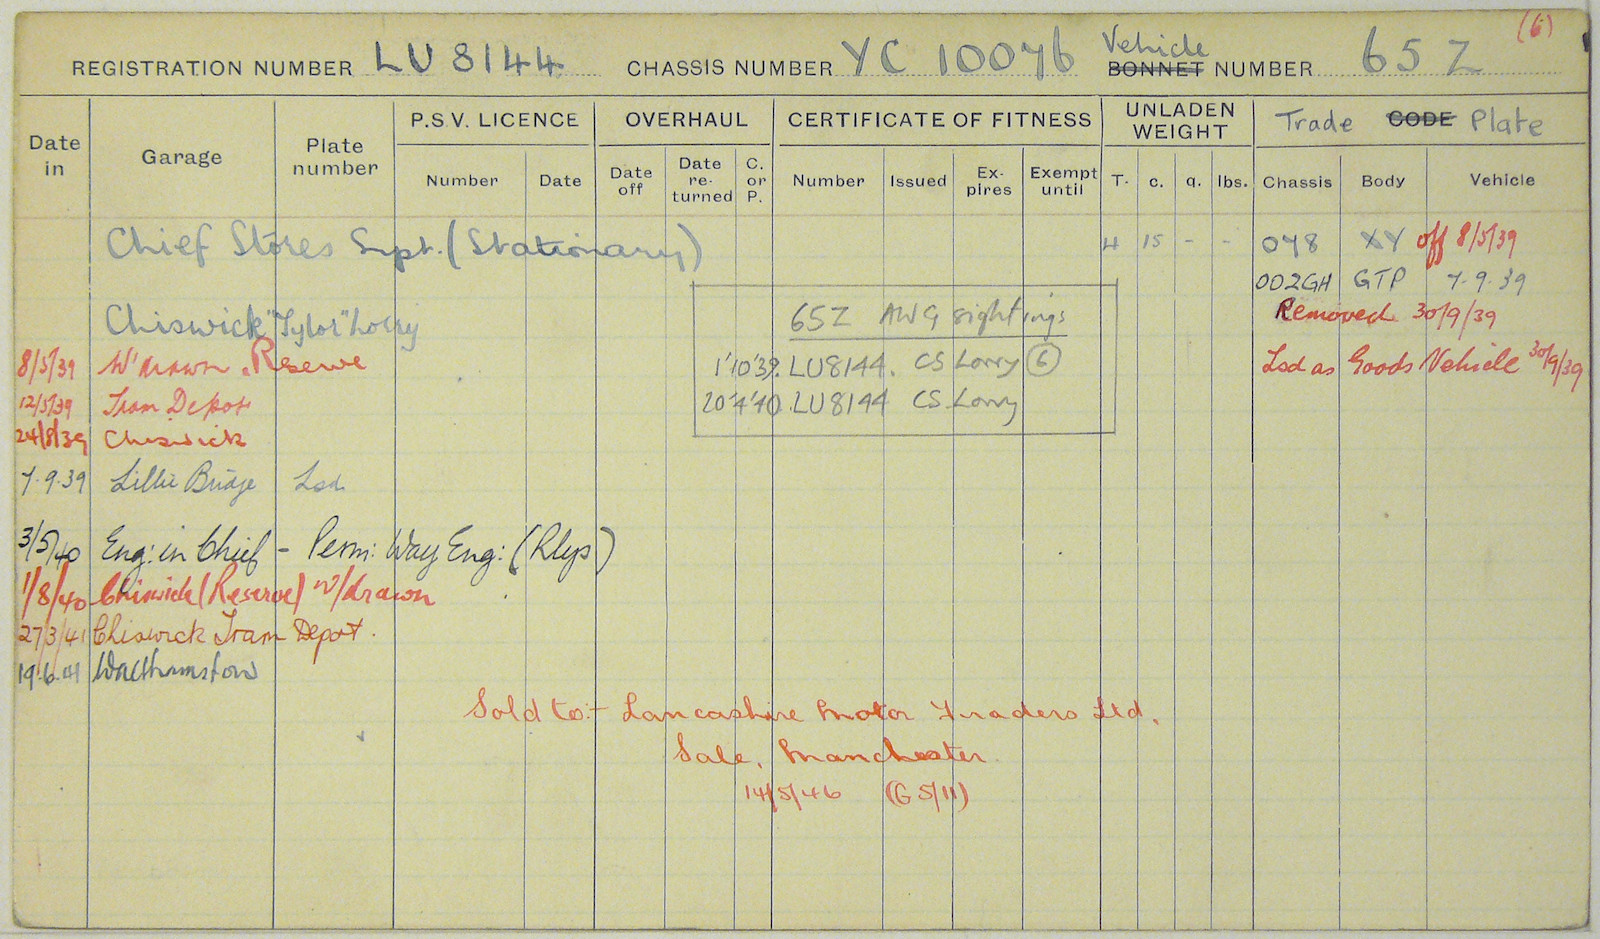 (6)
REGISTRATION NUMBER LU 8144 CHASSIS NUMBER YC 10076 Vehicle BONNET NUMBER 65 Z
Date in Garage Plate number P.S.V. LICENCE OVERHAUL CERTIFICATE OF FITNESS UNLADEN WEIGHT Trade CODE Plate
Number Date Date off Date re-turned C. or P. Number Issued Ex-pires Exempt until T. c. q. lbs. Chassis Body Vehicle
Chief Stores Supt. (Stationary) 4 15 - - 078 XY off 8/5/39
002GH GTP 7.9.39
Chiswick "Tylor" Lorry 65Z AWG sightings Removed 30/9/39
8/5/39 W'drawn. Reserve 1'10'39. LU8144. CS Lorry (6) Lsd as Goods Vehicle 30/9/39
12/5/39 Tram Depot 20'4'40. LU8144 CS. Lorry
24/8/39 Chiswick
7.9.39 Lillie Bridge Lsd.
3/5/40 Eng: in Chief - Perm: Way Eng: (Rlys)
1/8/40 Chiswick (Reserve) w/drawn
27/3/41 Chiswick Tram Depot.
19.6.41 Walthamstow
Sold to:- Lancashire Motor Traders Ltd,
Sale, Manchester
14/5/46 (G5/11)